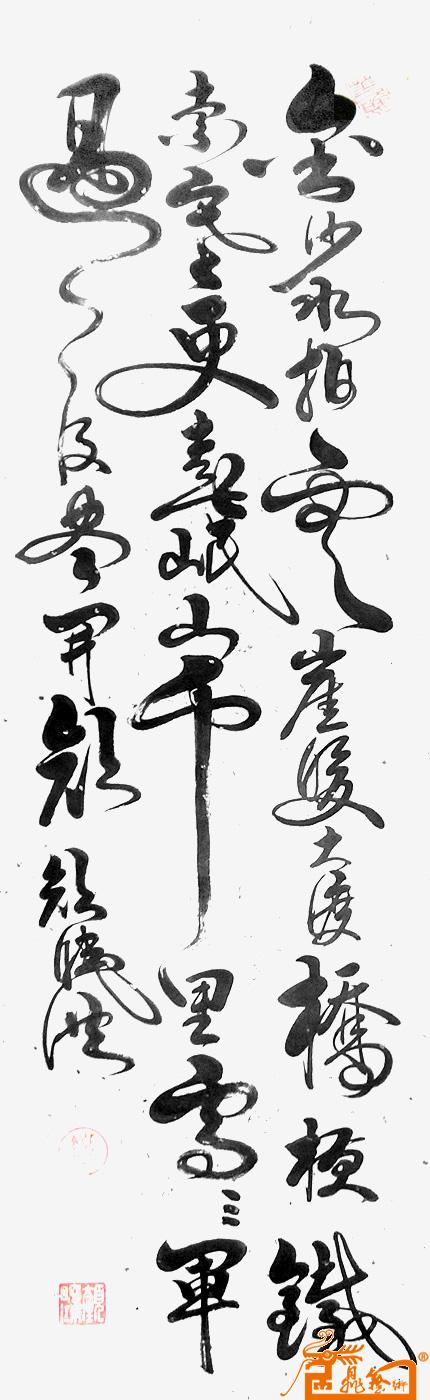 金沙水拍雲崖暖大渡橋横鐵
索寒更喜岷山千里雪三軍
過後尽開顔
顔曉